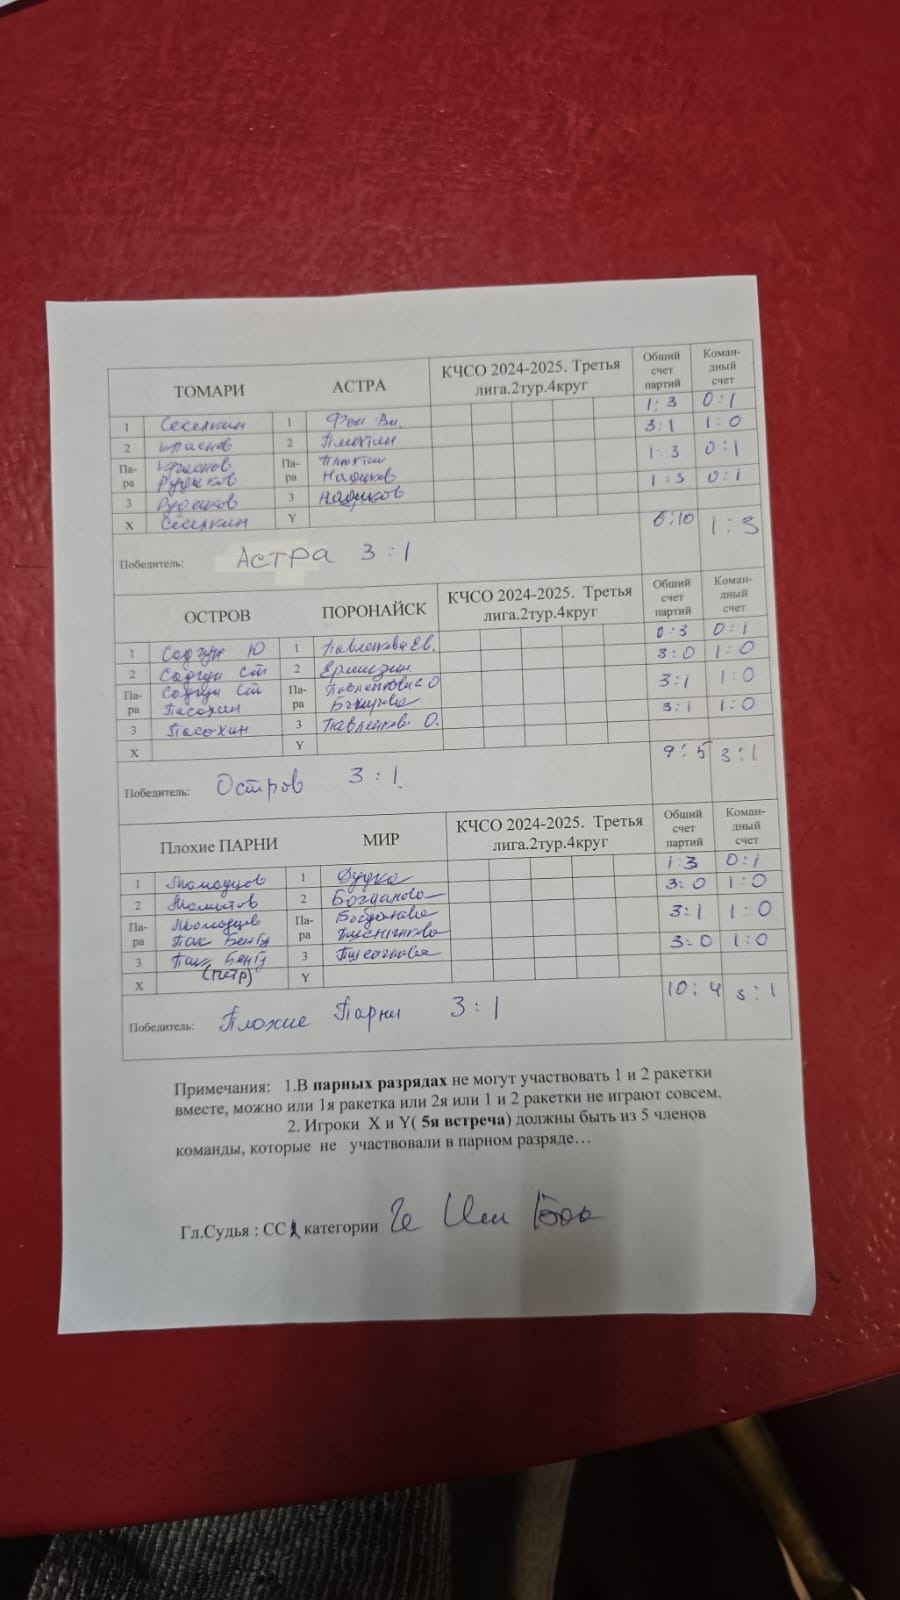 ТОМАРИ АСТРА КЧСО 2024-2025. Третья лига.2тур.4круг Общий счет партий Коман-дный счет
1 Сесёлкин 1 Фен Ви. 1:3 0:1
2 Краснов 2 Плюхтии 3:1 1:0
Па-ра Краснов Рудаков Па-ра Надиков 1:3 0:1
3 Рудаков 3 Надиков 1:3 0:1
X Сесёлкин Y
Победитель: Астра 3:1 6:10 1:3
ОСТРОВ ПОРОНАЙСК КЧСО 2024-2025. Третья лига.2тур.4круг Общий счет партий Коман-дный счет
1 Содгун Ю 1 Павленкова Ев. 0:3 0:1
2 Содгун Ст 2 3:0 1:0
Па-ра Содгун Ст Пасохин Па-ра О 3:1 1:0
3 Пасохин 3 О. 3:1 1:0
X Y
Победитель: Остров 3:1. 9:5 3:1
Плохие ПАРНИ МИР КЧСО 2024-2025. Третья лига.2тур.4круг Общий счет партий Коман-дный счет
1 1 1:3 0:1
2 2 Богданова 3:0 1:0
Па-ра Пак Па-ра Богданова 3:1 1:0
3 Пак (Петр) 3 3:0 1:0
X Y
Победитель: Плохие Парни 3:1 10:4 3:1
Примечания: 1.В парных разрядах не могут участвовать 1 и 2 ракетки
вместе, можно или 1я ракетка или 2я или 1 и 2 ракетки не играют совсем.
2. Игроки X и Y( 5я встреча) должны быть из 5 членов
команды, которые не участвовали в парном разряде…
Гл.Судья : СС категории Ге Ин Бок